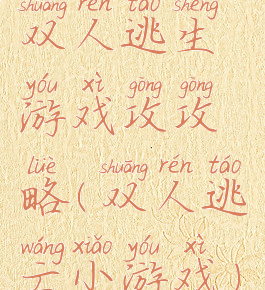 shuāng rén táo shēng
双人逃生
yóu xì gōng gōng
游戏攻攻
lüè shuāng rén táo
略(双人逃
wáng xiǎo yóu xì
亡小游戏)